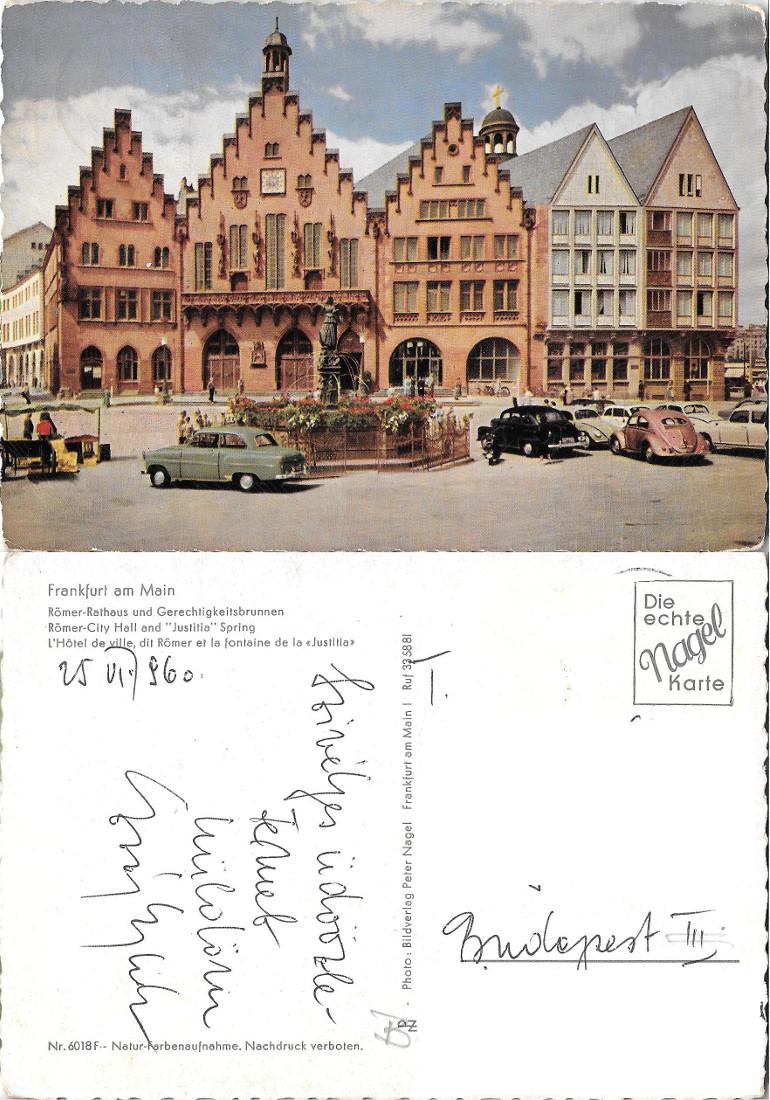 Frankfurt am Main
Römer-Rathaus und Gerechtigkeitsbrunnen
Römer-City Hall and "Justitia" Spring
L'Hôtel de ville, dit Römer et la fontaine de la «Justitia»
25 VI. 960.
Szivélyes üdvözle-
temet
küldöm
Nr. 6018 F - Natur-Farbenaufnahme. Nachdruck verboten.
Photo: Bildverlag Peter Nagel Frankfurt am Main 1 Ruf 335881
PN
Die
echte
Nagel
Karte
I.
Budapest III.